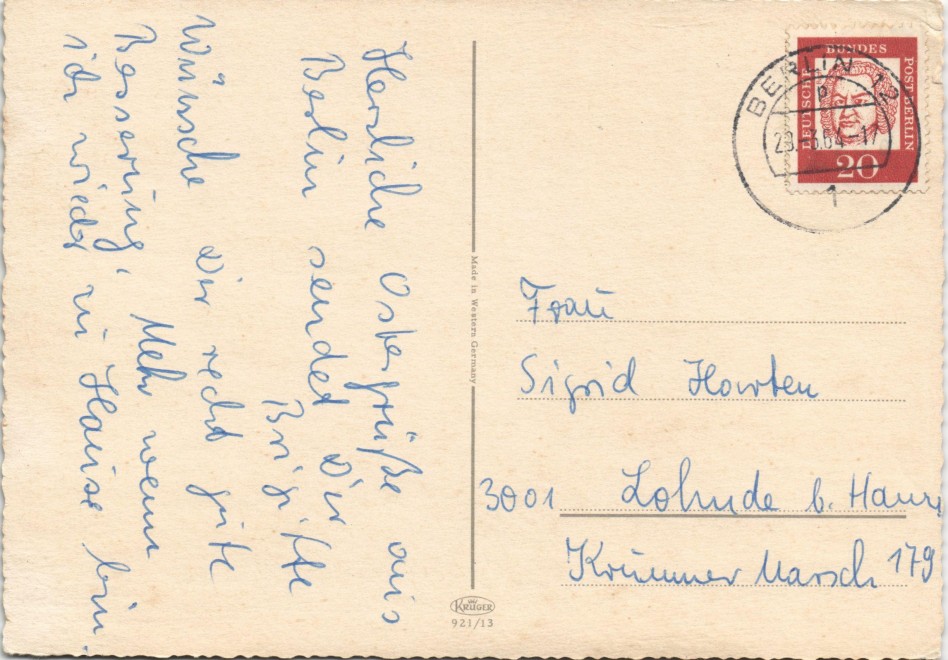 Herzliche Ostergrüße aus
Berlin sendet Dir
Brigitte
Wünsche Dir recht gute
Besserung, Mehr wenn
ich wieder zu Hause bin.
Made in Western Germany
KRÜGER
921/13
DEUTSCHE BUNDESPOST BERLIN
20
BERLIN 12
p
-17
1
Frau
Sigrid Horten
3001 Lohnde b. Hann.
Krummer Marsch 179